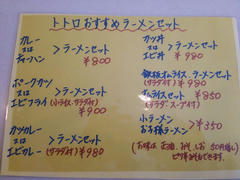 トトロおすすめラーメンセット
カレー
又は >ラーメンセット
チャーハン ¥800
ポークカツ
又は >ラーメンセット
エビフライ (小ライス・サラダ付) ¥900
カツカレー
又は >ラーメンセット
エビカレー (サラダ付) ¥980
カツ丼
又は >ラーメンセット
エビ丼 ¥980
鉄板オムライス、ラーメンセット
(サラダ付) ¥980
オムライスセット ¥850
(サラダ、スープ付)
小ラーメン
お子様ラーメン >¥350
(お味は 正油、みそ、しお 50円増し